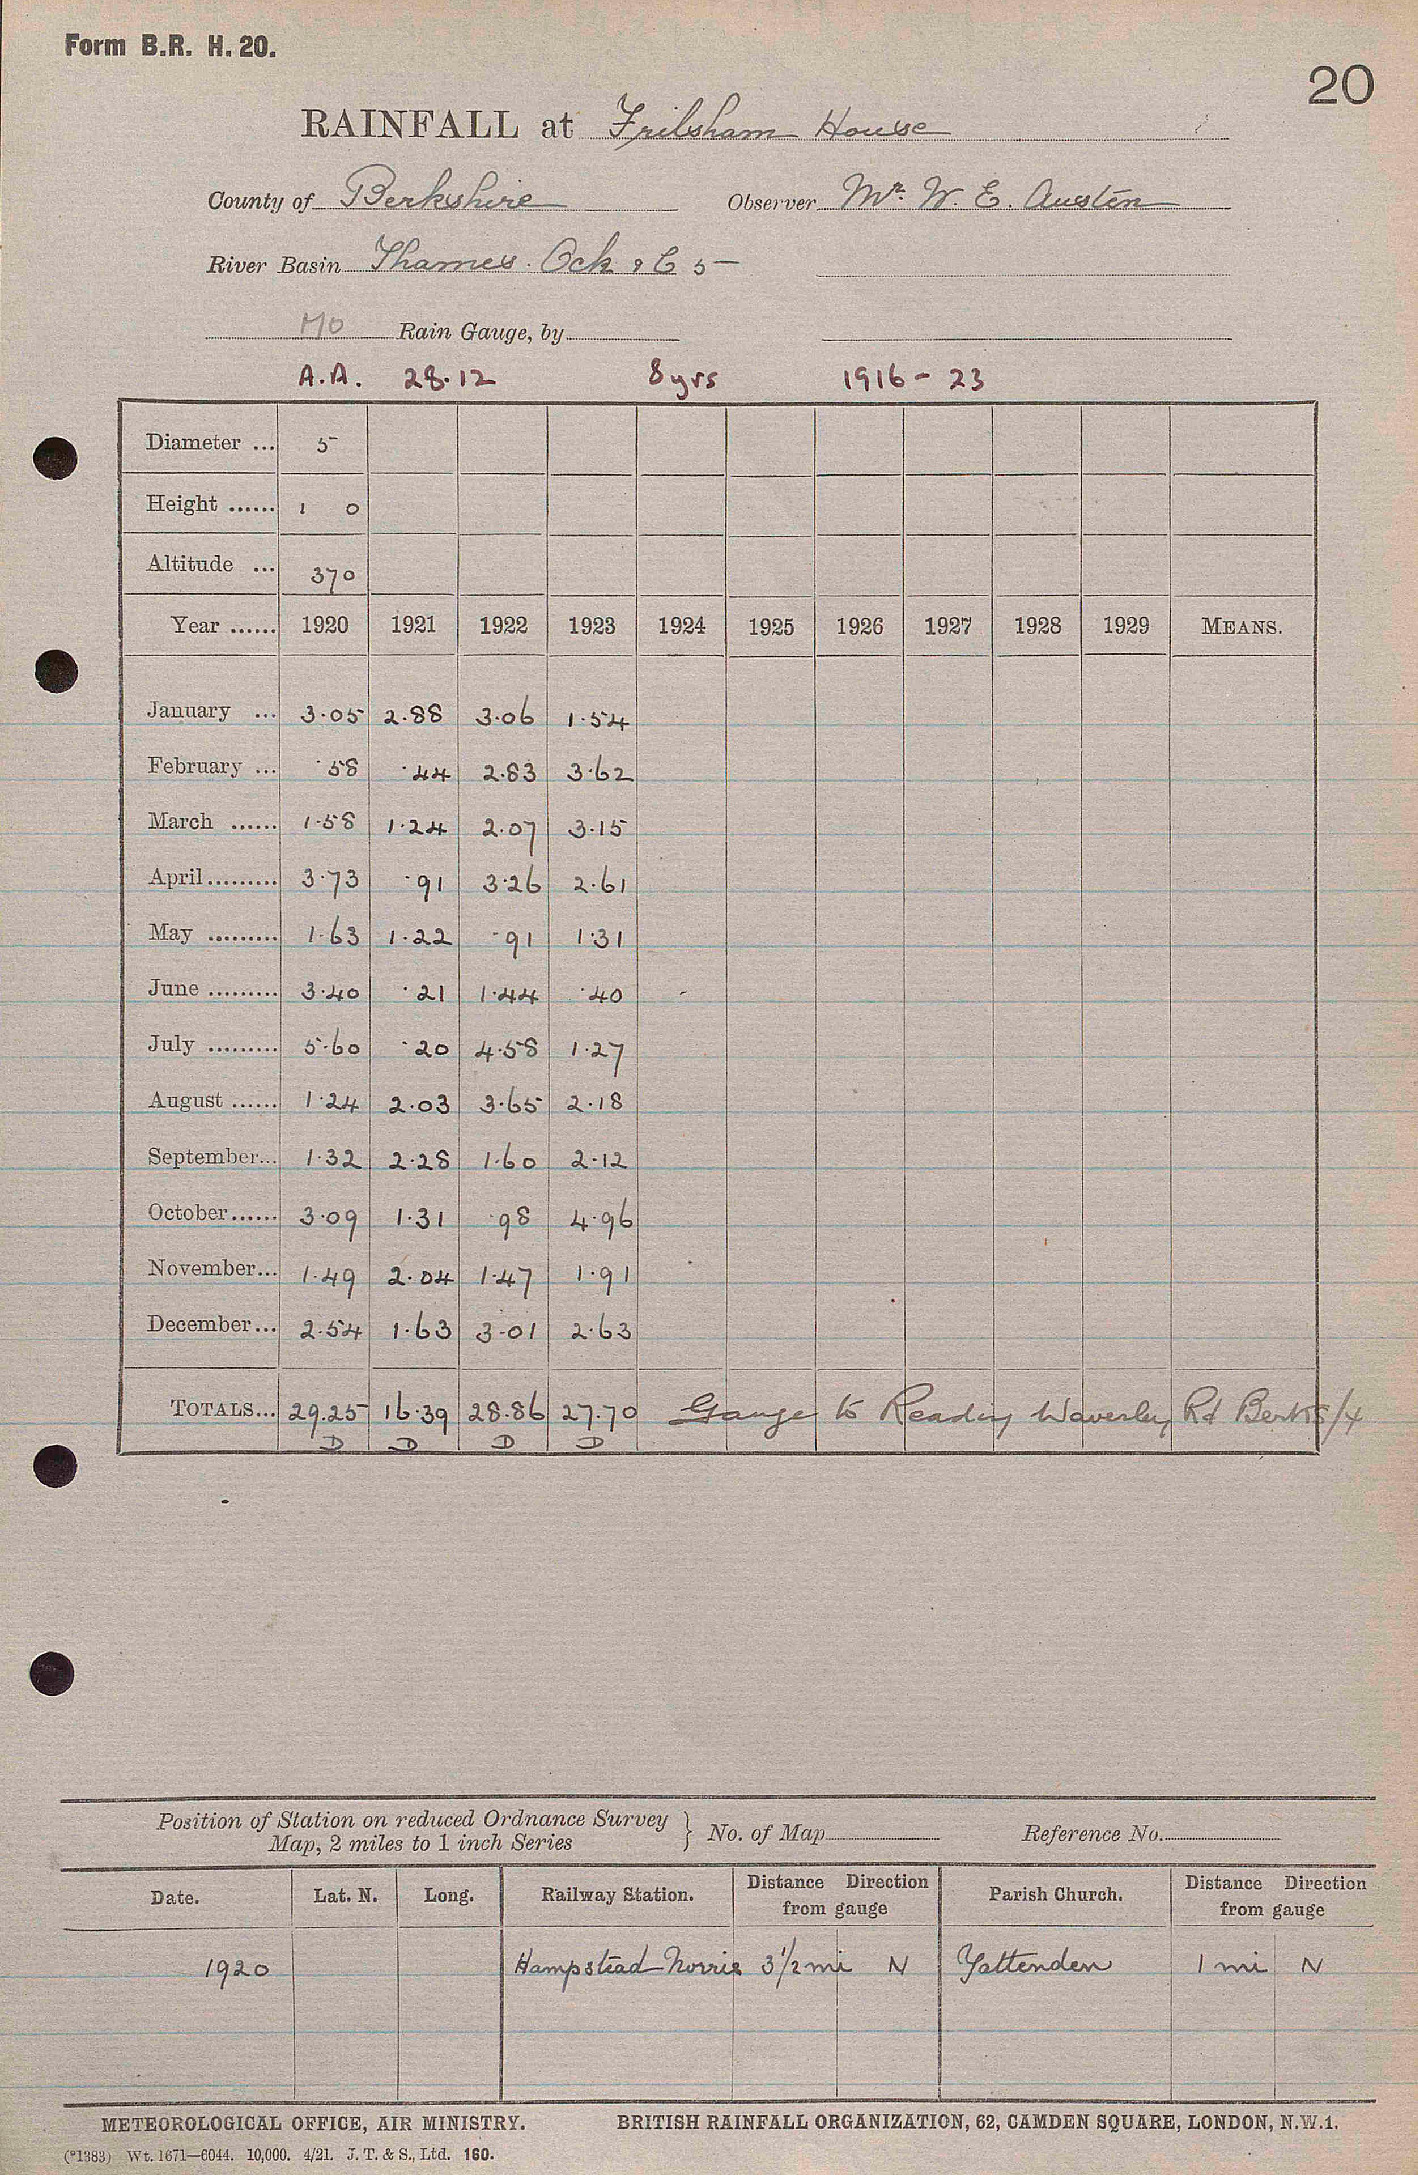 Form B.R. H. 20.
20
RAINFALL at Frilsham House
County of Berkshire Observer Mr. W. E. Austen
River Basin Thames. Ock &c 5
MO Rain Gauge, by
A.A. 28.12 8 yrs 1916 - 23
Diameter ... 5
Height ...... 1 0
Altitude ... 370
Year ...... 1920 1921 1922 1923 1924 1925 1926 1927 1928 1929 MEANS.
January ... 3.05 2.88 3.06 1.54
February ... .58 .44 2.83 3.62
March ...... 1.58 1.24 2.07 3.15
April ......... 3.73 .91 3.26 2.61
May ......... 1.63 1.22 .91 1.31
June ......... 3.40 .21 1.44 .40
July ......... 5.60 .20 4.58 1.27
August ...... 1.24 2.03 3.65 2.18
September... 1.32 2.28 1.60 2.12
October...... 3.09 1.31 .98 4.96
November... 1.49 2.04 1.47 1.91
December... 2.54 1.63 3.01 2.63
TOTALS... 29.25 16.39 28.86 27.70 Gauge to Reading Waverley Rd Berks/4
D D D D
Position of Station on reduced Ordnance Survey
Map, 2 miles to 1 inch Series } No. of Map Reference No.
Date. Lat. N. Long. Railway Station. Distance Direction from gauge Parish Church. Distance Direction from gauge
1920 Hampstead Norris 3 1/2 mi N Yattenden 1 mi N
METEOROLOGICAL OFFICE, AIR MINISTRY. BRITISH RAINFALL ORGANIZATION, 62, CAMDEN SQUARE, LONDON, N.W.1.
(*1383) Wt. 1671—6044. 10,000. 4/21. J. T. & S., Ltd. 160.